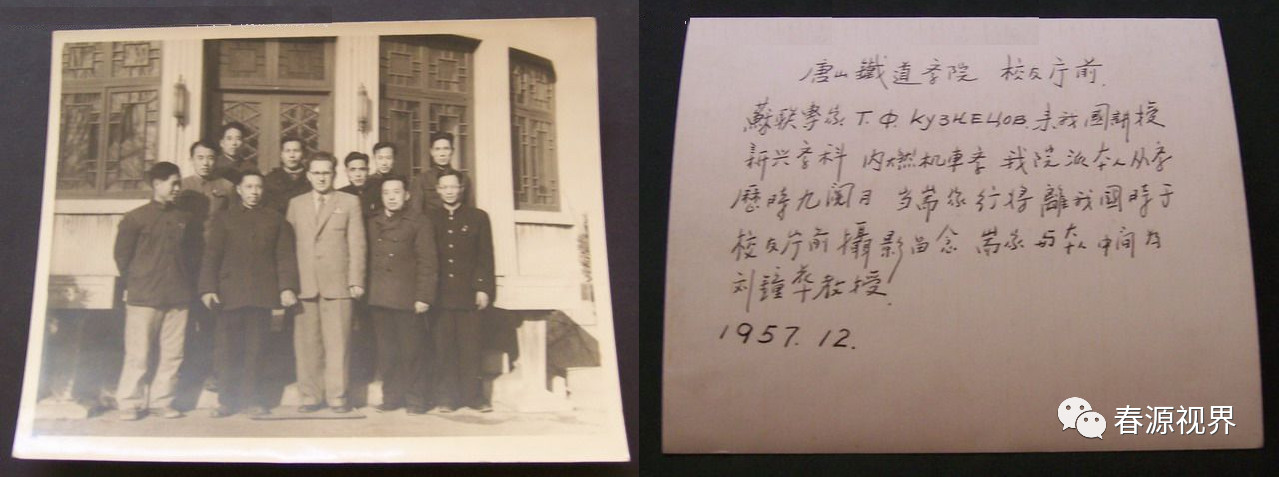 唐山鐵道学院 校友厅前.
蘇联專家 Т.Ф. КУЗНЕЦОВ 来我國講授
新兴学科 内燃机車学 我院派本人从学
歷時九閱月 当專家行将離我國時于
校友厅前攝影留念 專家与本人中间为
刘鐘华教授.
1957. 12.
春源视界